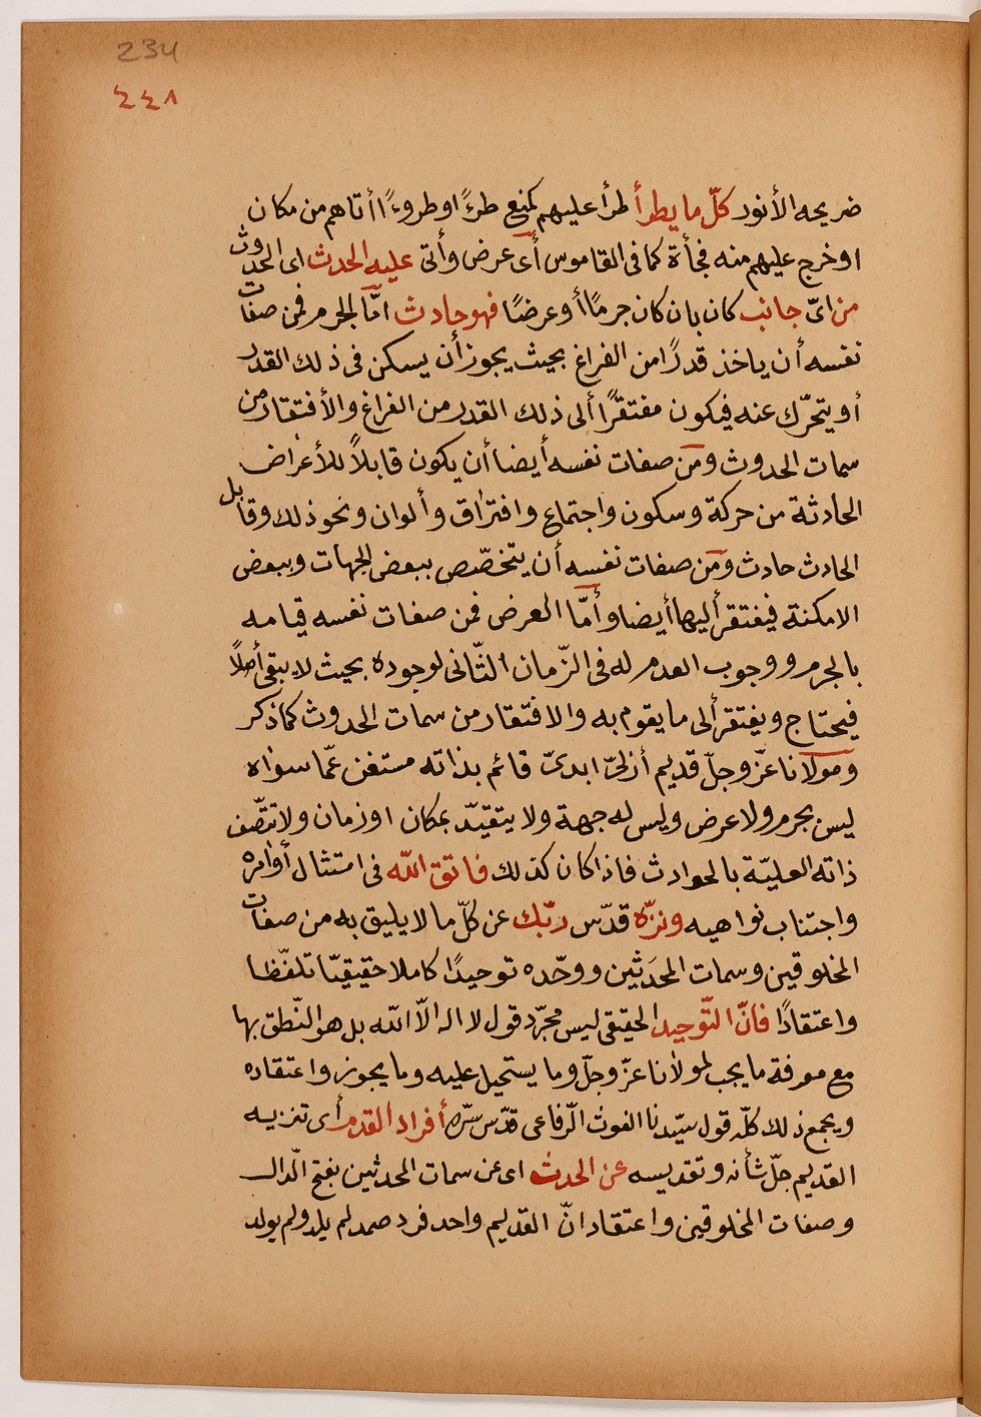 234
٤٤٨
ضريحه الأنور كلّ ما يطرأ طرأ عليهم كمنع طرءًا وطروءًا أتاهم من مكان
او خرج عليهم منه فجأة كما فى القاموس أى عرض وأتى عليه الحدث اى الحدوث
من اىّ جانب كان بان كان جرمًا أو عرضًا فهو حادث امّا الجرم فمن صفات
نفسه أن ياخذ قدرًا من الفراغ بحيث يجوز أن يسكن فى ذلك القدر
أو يتحرّك عنه فيكون مفتقرًا ألى ذلك القدر من الفراغ والأفتقار من
سمات الحدوث ومن صفات نفسه أيضا أن يكون قابلاً للأعراض
الحادثة من حركة وسكون واجتماع وافتراق وألوان ونحو ذلك وقابل
الحادث حادث ومن صفات نفسه أن يتخصّص ببعض الجهات وببعض
الامكنة فيفتقر أليها أيضا وأمّا العرض فمن صفات نفسه قيامه
بالجرم ووجوب العدم له فى الزّمان الثّانى لوجوده بحيث لا يبقى أصلاً
فيحتاج ويفتقر ألى ما يقوم به والافتقار من سمات الحدوث كما ذكر
ومولانا عزّ وجلّ قديم أزلىّ ابدىّ قائم بذاته مستغن عمّا سواه
ليس بجرم ولا عرض وليس له جهة ولا يتقيّد بمكان او زمان ولا تتّصف
ذاته العليّة بالحوادث فاذا كان كذلك فاتق اللّه فى امتثال أوامره
واجتناب نواهيه ونزّه قدّس ربّك عن كلّ ما لا يليق به من صفات
المخلوقين وسمات المحدَثين ووحّده توحيدًا كاملا حقيقيّا تلفّظا
واعتقادًا فانّ التّوحيد الحقيقى ليس مجرّد قول لا اله الّا اللّه بل هو النّطق بها
مع معرفة ما يجب لمولانا عزّ وجلّ وما يستحيل عليه وما يجوز واعتقاده
ويجمع ذلك كلّه قول سيّدنا الغوث الرّفاعى قدّس سرّه أفراد القدم أى تنزيه
القديم جلّ شأنه وتقديسه عن الحدث اى عن سمات المحدثين بفتح الدّال
وصفات المخلوقين واعتقاد انّ القديم واحد فرد صمد لم يلد ولم يولد